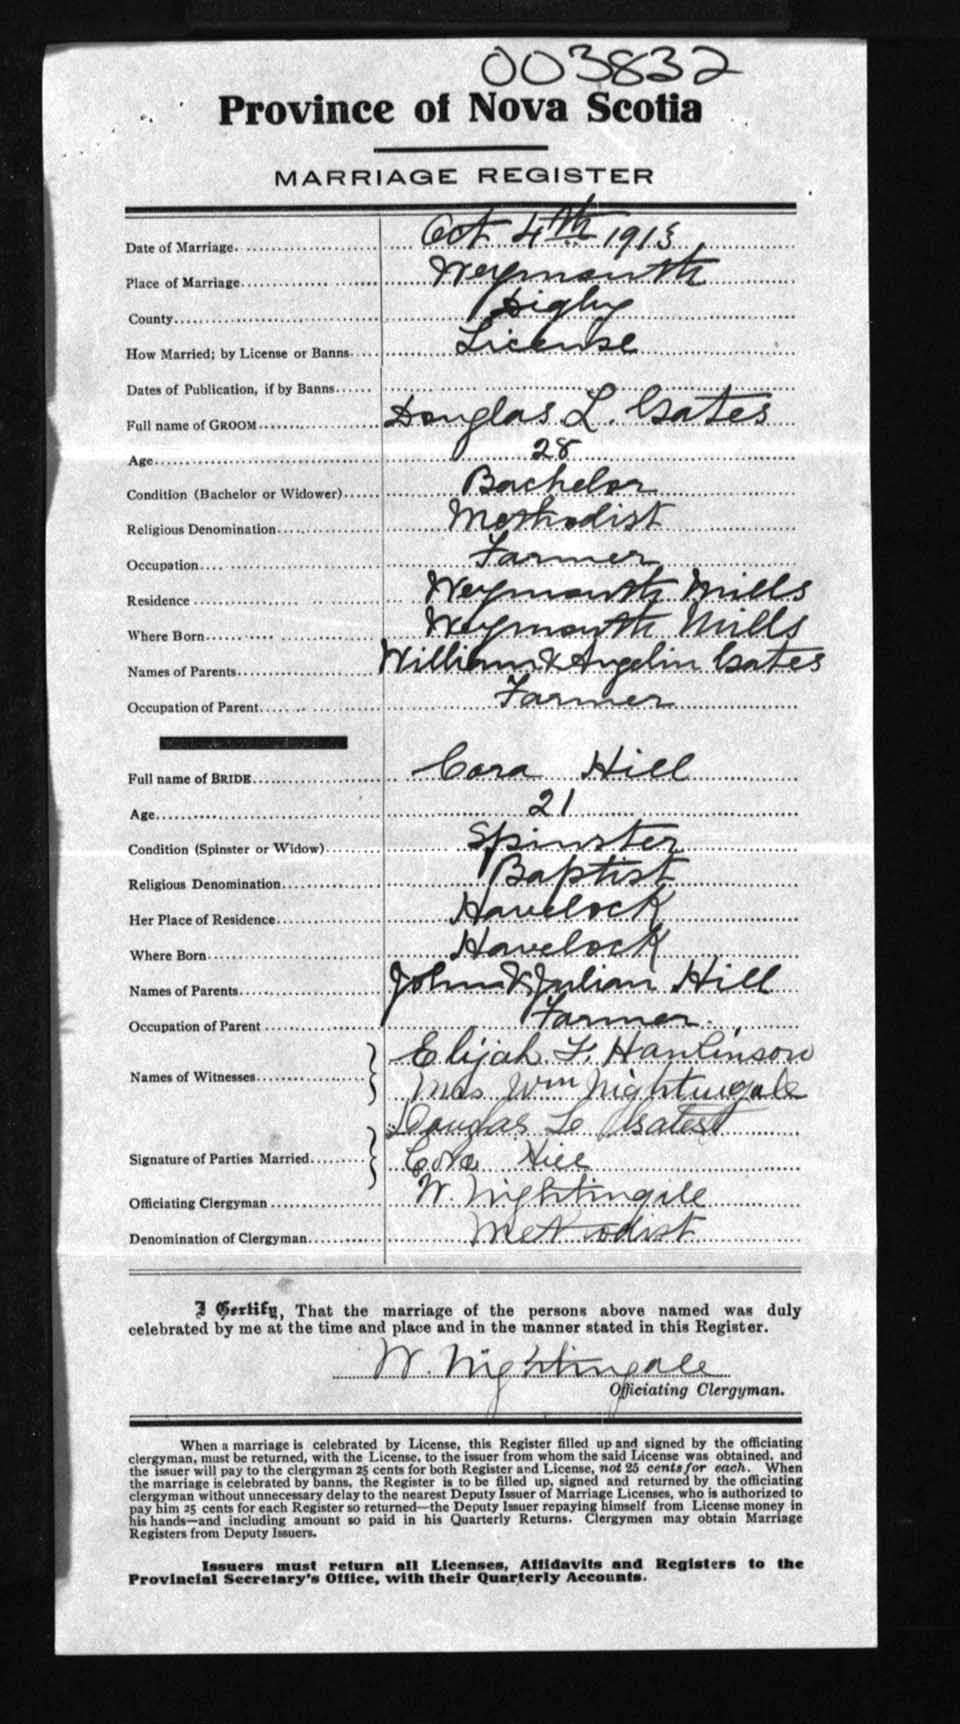 003832
Province of Nova Scotia
MARRIAGE REGISTER
Date of Marriage. Oct 4th 1913
Place of Marriage Weymouth
County Digby
How Married; by License or Banns License
Dates of Publication, if by Banns
Full name of GROOM Douglas L. Gates
Age 28
Condition (Bachelor or Widower) Bachelor
Religious Denomination Methodist
Occupation Farmer
Residence Weymouth Mills
Where Born Weymouth Mills
Names of Parents William & Angelin Gates
Occupation of Parent Farmer
Full name of BRIDE Cora Hill
Age 21
Condition (Spinster or Widow) Spinster
Religious Denomination Baptist
Her Place of Residence Havelock
Where Born Havelock
Names of Parents John & Julian Hill
Occupation of Parent Farmer
Names of Witnesses Elijah F. Hankinson
Mrs Wm Nightingale
Signature of Parties Married Douglas L Gates
Cora Hill
Officiating Clergyman W. Nightingale
Denomination of Clergyman Methodist
I Certify, That the marriage of the persons above named was duly
celebrated by me at the time and place and in the manner stated in this Register.
W. Nightingale
Officiating Clergyman.
When a marriage is celebrated by License, this Register filled up and signed by the officiating
clergyman, must be returned, with the License, to the issuer from whom the said License was obtained, and
the issuer will pay to the clergyman 25 cents for both Register and License, not 25 cents for each. When
the marriage is celebrated by banns, the Register is to be filled up, signed and returned by the officiating
clergyman without unnecessary delay to the nearest Deputy Issuer of Marriage Licenses, who is authorized to
pay him 25 cents for each Register so returned—the Deputy Issuer repaying himself from License money in
his hands—and including amount so paid in his Quarterly Returns. Clergymen may obtain Marriage
Registers from Deputy Issuers.
Issuers must return all Licenses, Affidavits and Registers to the
Provincial Secretary's Office, with their Quarterly Accounts.